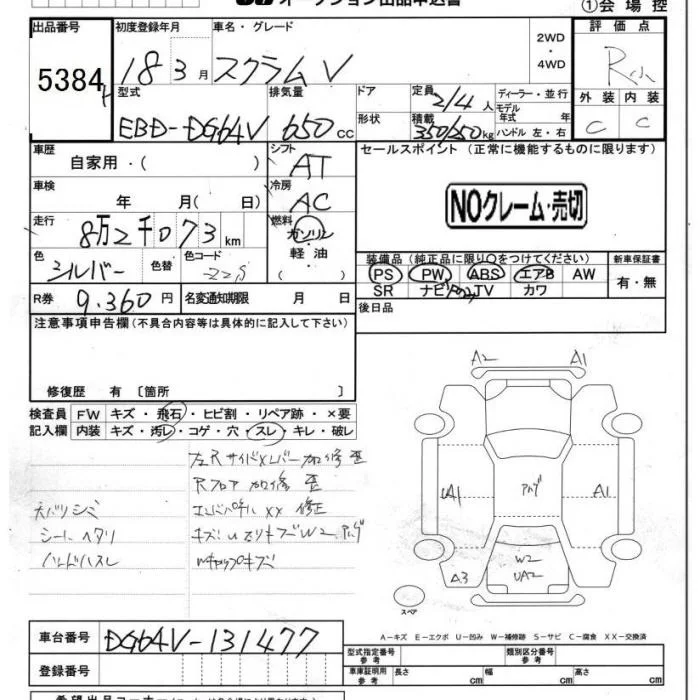 ①会場控
出品番号 初度登録年月 車名・グレード 評価点
5384 18 3月 スクラムV 2WD・4WD R
型式 排気量 ドア 定員 2/4人 ディーラー・並行 外装 内装
EBD-DG64V 650cc 形状 積載 350/250kg モデル年式 年 ハンドル 左・右 C C
車歴 シフト セールスポイント（正常に機能するものに限ります）
自家用・（ ） AT
車検 冷房
年 月（ 日） AC NOクレーム・売切
走行 燃料
8万2千073km ガソリン
色 色替 色コード 軽油 装備品（純正品に限り○をつけてください） 新車保証書
シルバー Z2S （ ） PS PW ABS エアB AW 有・無
SR ナビ TV カワ
R券 9.360円 名変通知期限 月 日 後日品
注意事項申告欄（不具合内容等は具体的に記入して下さい）
修復歴 有 〔箇所 〕
検査員 FW キズ・飛石・ヒビ割・リペア跡・×要
記入欄 内装 キズ・汚レ・コゲ・穴・スレ・キレ・破レ
A2 A1
左右サイドメンバー加修 歪
Rフロア 加修 歪
エンドパネル XX 修正
天バリシミ
シートヘタリ
ハンドルスレ
キャップキズ
A1 アルゲ A1
A3 W2
UA2
スペア
A−キズ E−エクボ U−凹み W−補修跡 S−サビ C−腐食 XX−交換済
車台番号 DG64V-131477 型式指定番号 参考 類別区分番号 参考
登録番号 車庫証明用 参考 長さ cm 幅 cm 高さ cm